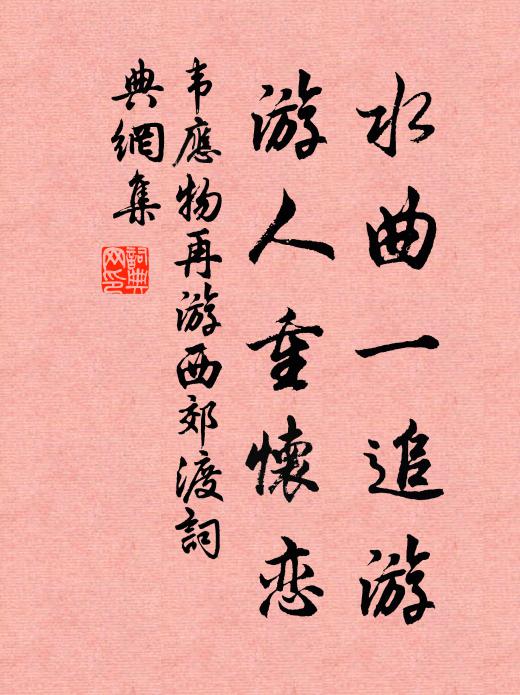 水曲一追游
游人重懷恋
韦應物再游西郊渡詞
典網集
詞典网印